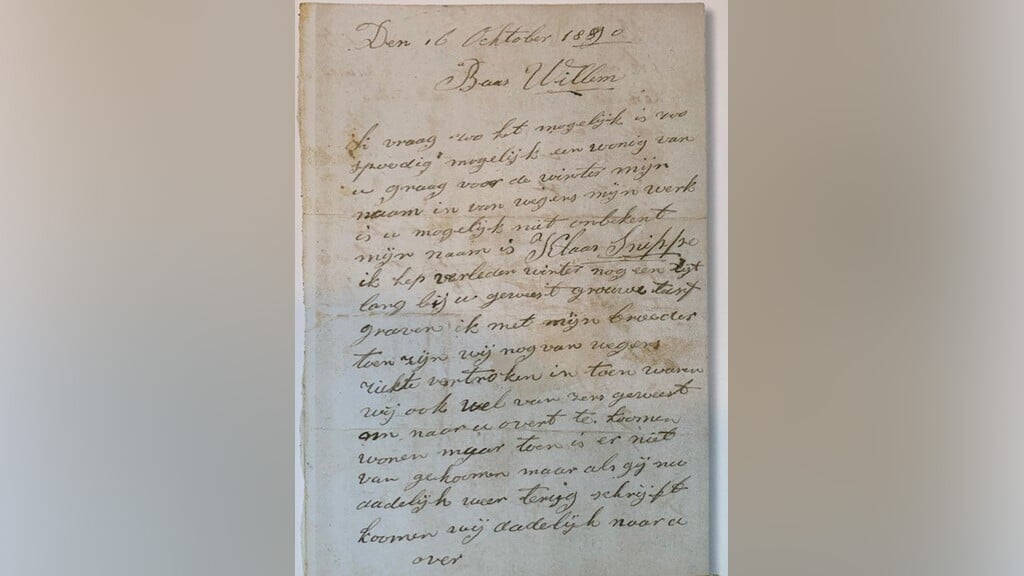 Den 16 Ochtober 1890
Baas Willem
ik vraag zoo het mogelijk is zoo
spoedig mogelijk een wonig van
u graag voor de winter mijn
naam in van wegens mijn werk
is u mogelijk niet onbekent
mijn naam is Klaas Snippe
ik hep verleden winter nog een
lang bij u geweest grouwe turf
graven ik met mijn broeder
toen zijn wij nog van wegens
ziekte vertroken in toen waren
wij ook wel van zens geweest
om naar u overt te koomen
wonen maar toen is er niet
van gekoomen maar als gij nu
dadelijk weer terug schrijft
koomen wij dadelijk naar u
over